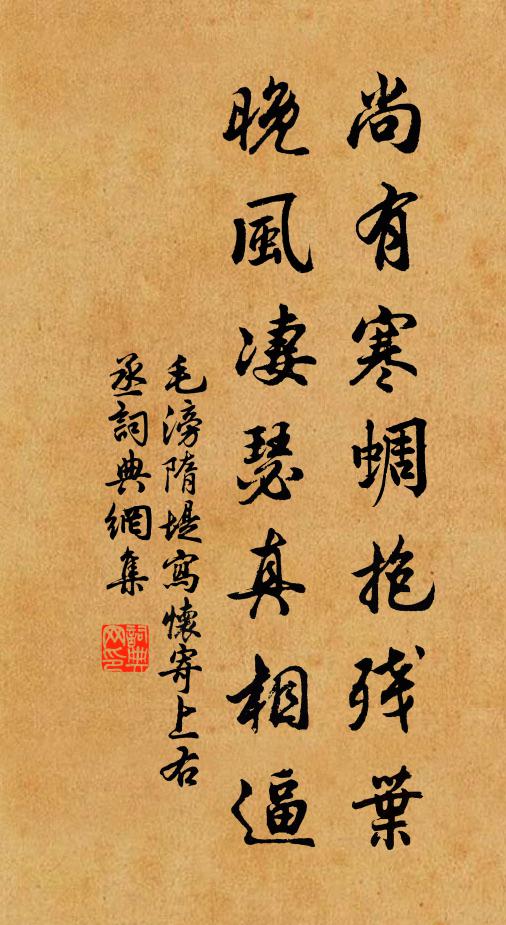 尚有寒蜩抱残葉
晚風凄瑟真相逼
毛滂隋堤寫懷寄上右
丞詞典網集
詞典網印